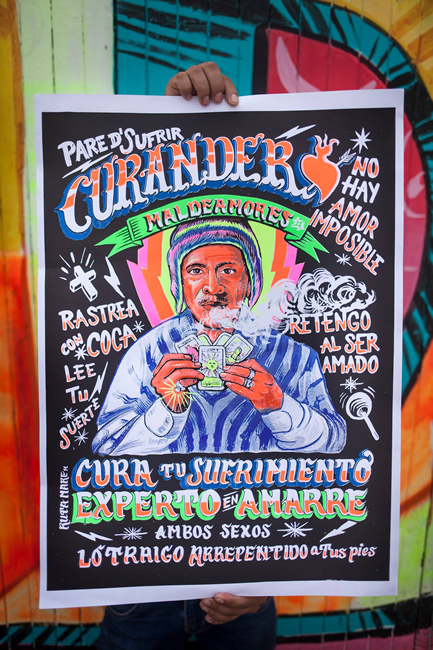 PARE D'SUFRIR
CURANDERO
MALDEAMORES
NO
HAY
AMOR
IMPOSIBLE
RASTREA
CON COCA
LEE
TU
SUERTE
RETENGO
AL SER
AMADO
CURA TU SUFRIMIENTO
EXPERTO EN AMARRE
AMBOS SEXOS
LO TRAIGO ARREPENTIDO a Tus pies